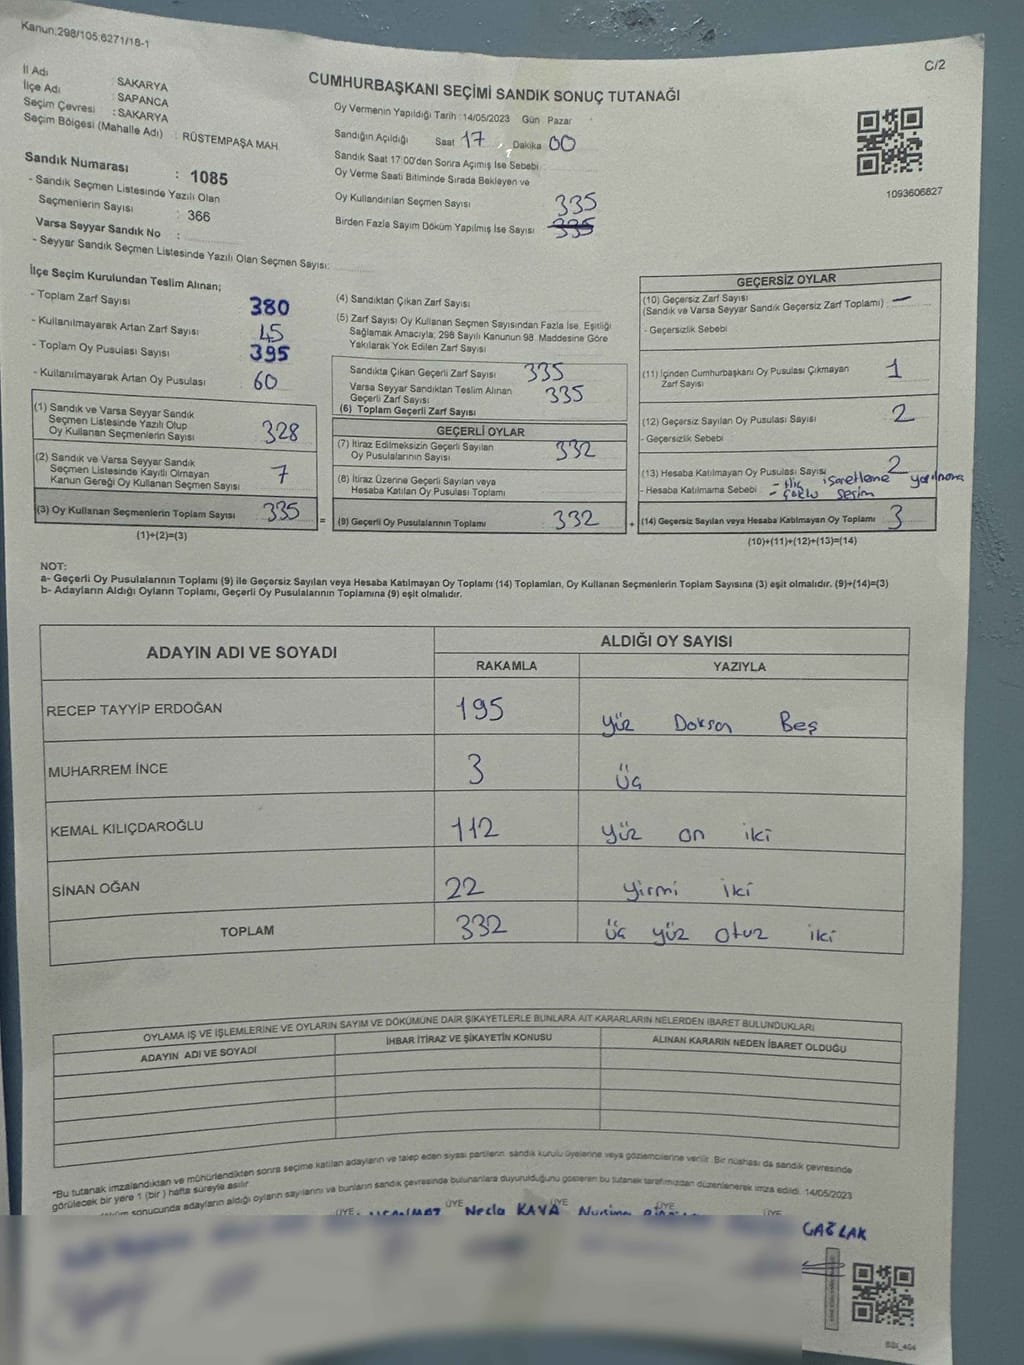 Kanun:298/105;6271/18-1
C/2
İl Adı : SAKARYA
İlçe Adı : SAPANCA
Seçim Çevresi : SAKARYA
Seçim Bölgesi (Mahalle Adı) : RÜSTEMPAŞA MAH
Sandık Numarası : 1085
- Sandık Seçmen Listesinde Yazılı Olan
Seçmenlerin Sayısı : 366
Varsa Seyyar Sandık No :
- Seyyar Sandık Seçmen Listesinde Yazılı Olan Seçmen Sayısı:
CUMHURBAŞKANI SEÇİMİ SANDIK SONUÇ TUTANAĞI
Oy Vermenin Yapıldığı Tarih : 14/05/2023 Gün Pazar
Sandığın Açıldığı Saat 17 Dakika 00
Sandık Saat 17:00'den Sonra Açımış İse Sebebi
Oy Verme Saati Bitiminde Sırada Bekleyen ve
Oy Kullandırılan Seçmen Sayısı 335
Birden Fazla Sayım Döküm Yapılmış İse Sayısı 335
1093606827
İlçe Seçim Kurulundan Teslim Alınan;
- Toplam Zarf Sayısı 380
- Kullanılmayarak Artan Zarf Sayısı 45
- Toplam Oy Pusulası Sayısı 395
- Kullanılmayarak Artan Oy Pusulası 60
(1) Sandık ve Varsa Seyyar Sandık
Seçmen Listesinde Yazılı Olup
Oy Kullanan Seçmenlerin Sayısı 328
(2) Sandık ve Varsa Seyyar Sandık
Seçmen Listesinde Kayıtlı Olmayan
Kanun Gereği Oy Kullanan Seçmen Sayısı 7
(3) Oy Kullanan Seçmenlerin Toplam Sayısı 335
(1)+(2)=(3)
=
(4) Sandıktan Çıkan Zarf Sayısı
(5) Zarf Sayısı Oy Kullanan Seçmen Sayısından Fazla İse, Eşitliği
Sağlamak Amacıyla; 298 Sayılı Kanunun 98. Maddesine Göre
Yakılarak Yok Edilen Zarf Sayısı
Sandıkta Çıkan Geçerli Zarf Sayısı 335
Varsa Seyyar Sandıktan Teslim Alınan
Geçerli Zarf Sayısı 335
(6) Toplam Geçerli Zarf Sayısı
GEÇERLİ OYLAR
(7) İtiraz Edilmeksizin Geçerli Sayılan
Oy Pusulalarının Sayısı 332
(8) İtiraz Üzerine Geçerli Sayılan veya
Hesaba Katılan Oy Pusulası Toplamı
(9) Geçerli Oy Pusulalarının Toplamı 332
+
GEÇERSİZ OYLAR
(10) Geçersiz Zarf Sayısı
(Sandık ve Varsa Seyyar Sandık Geçersiz Zarf Toplamı) —
- Geçersizlik Sebebi
(11) İçinden Cumhurbaşkanı Oy Pusulası Çıkmayan
Zarf Sayısı 1
(12) Geçersiz Sayılan Oy Pusulası Sayısı 2
- Geçersizlik Sebebi
(13) Hesaba Katılmayan Oy Pusulası Sayısı 2
- Hesaba Katılmama Sebebi - Hiç işaretleme yapılmama
- Çoklu seçim
(14) Geçersiz Sayılan veya Hesaba Katılmayan Oy Toplamı 3
(10)+(11)+(12)+(13)=(14)
NOT:
a- Geçerli Oy Pusulalarının Toplamı (9) ile Geçersiz Sayılan veya Hesaba Katılmayan Oy Toplamı (14) Toplamları, Oy Kullanan Seçmenlerin Toplam Sayısına (3) eşit olmalıdır. (9)+(14)=(3)
b- Adayların Aldığı Oyların Toplamı, Geçerli Oy Pusulalarının Toplamına (9) eşit olmalıdır.
ADAYIN ADI VE SOYADI ALDIĞI OY SAYISI
RAKAMLA YAZIYLA
RECEP TAYYİP ERDOĞAN 195 Yüz Doksan Beş
MUHARREM İNCE 3 Üç
KEMAL KILIÇDAROĞLU 112 Yüz on iki
SİNAN OĞAN 22 Yirmi iki
TOPLAM 332 üç yüz otuz iki
OYLAMA İŞ VE İŞLEMLERİNE VE OYLARIN SAYIM VE DÖKÜMÜNE DAİR ŞİKAYETLERLE BUNLARA AİT KARARLARIN NELERDEN İBARET BULUNDUKLARI
ADAYIN ADI VE SOYADI İHBAR İTİRAZ VE ŞİKAYETİN KONUSU ALINAN KARARIN NEDEN İBARET OLDUĞU
*Bu tutanak imzalandıktan ve mühürlendikten sonra seçime katılan adayların ve talep eden siyasi partilerin sandık kurulu üyelerine veya gözlemcilerine verilir. Bir nüshası da sandık çevresinde
görülecek bir yere 1 (bir) hafta süreyle asılır.
sonucunda adayların aldığı oyların sayılarını ve bunların sandık çevresinde bulunanlara duyurulduğunu gösteren bu tutanak tarafımızdan düzenlenerek imza edildi. 14/05/2023
ÜYE ÜYE ÜYE ÜYE
Necla KAYA
ÇAĞLAK